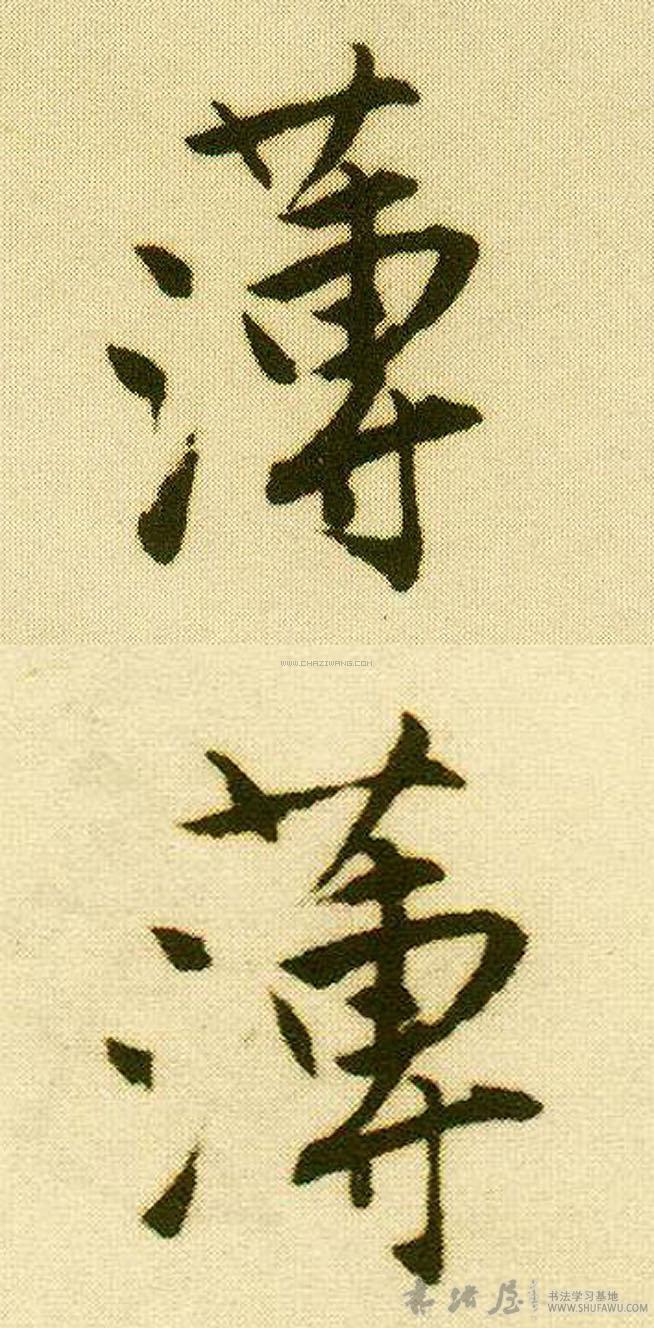 薄
WWW.CHAZIWANG.COM
薄
书法学习基地
WWW.SHUFAWU.COM